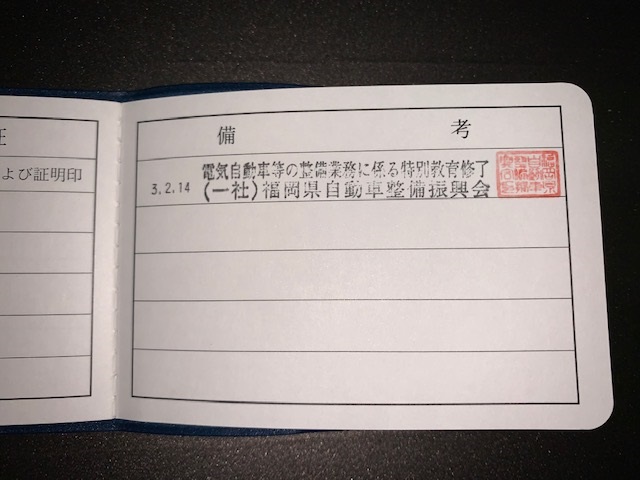 証
よび証明印
備考
3.2.14
電気自動車等の整備業務に係る特別教育修了
(一社)福岡県自動車整備振興会